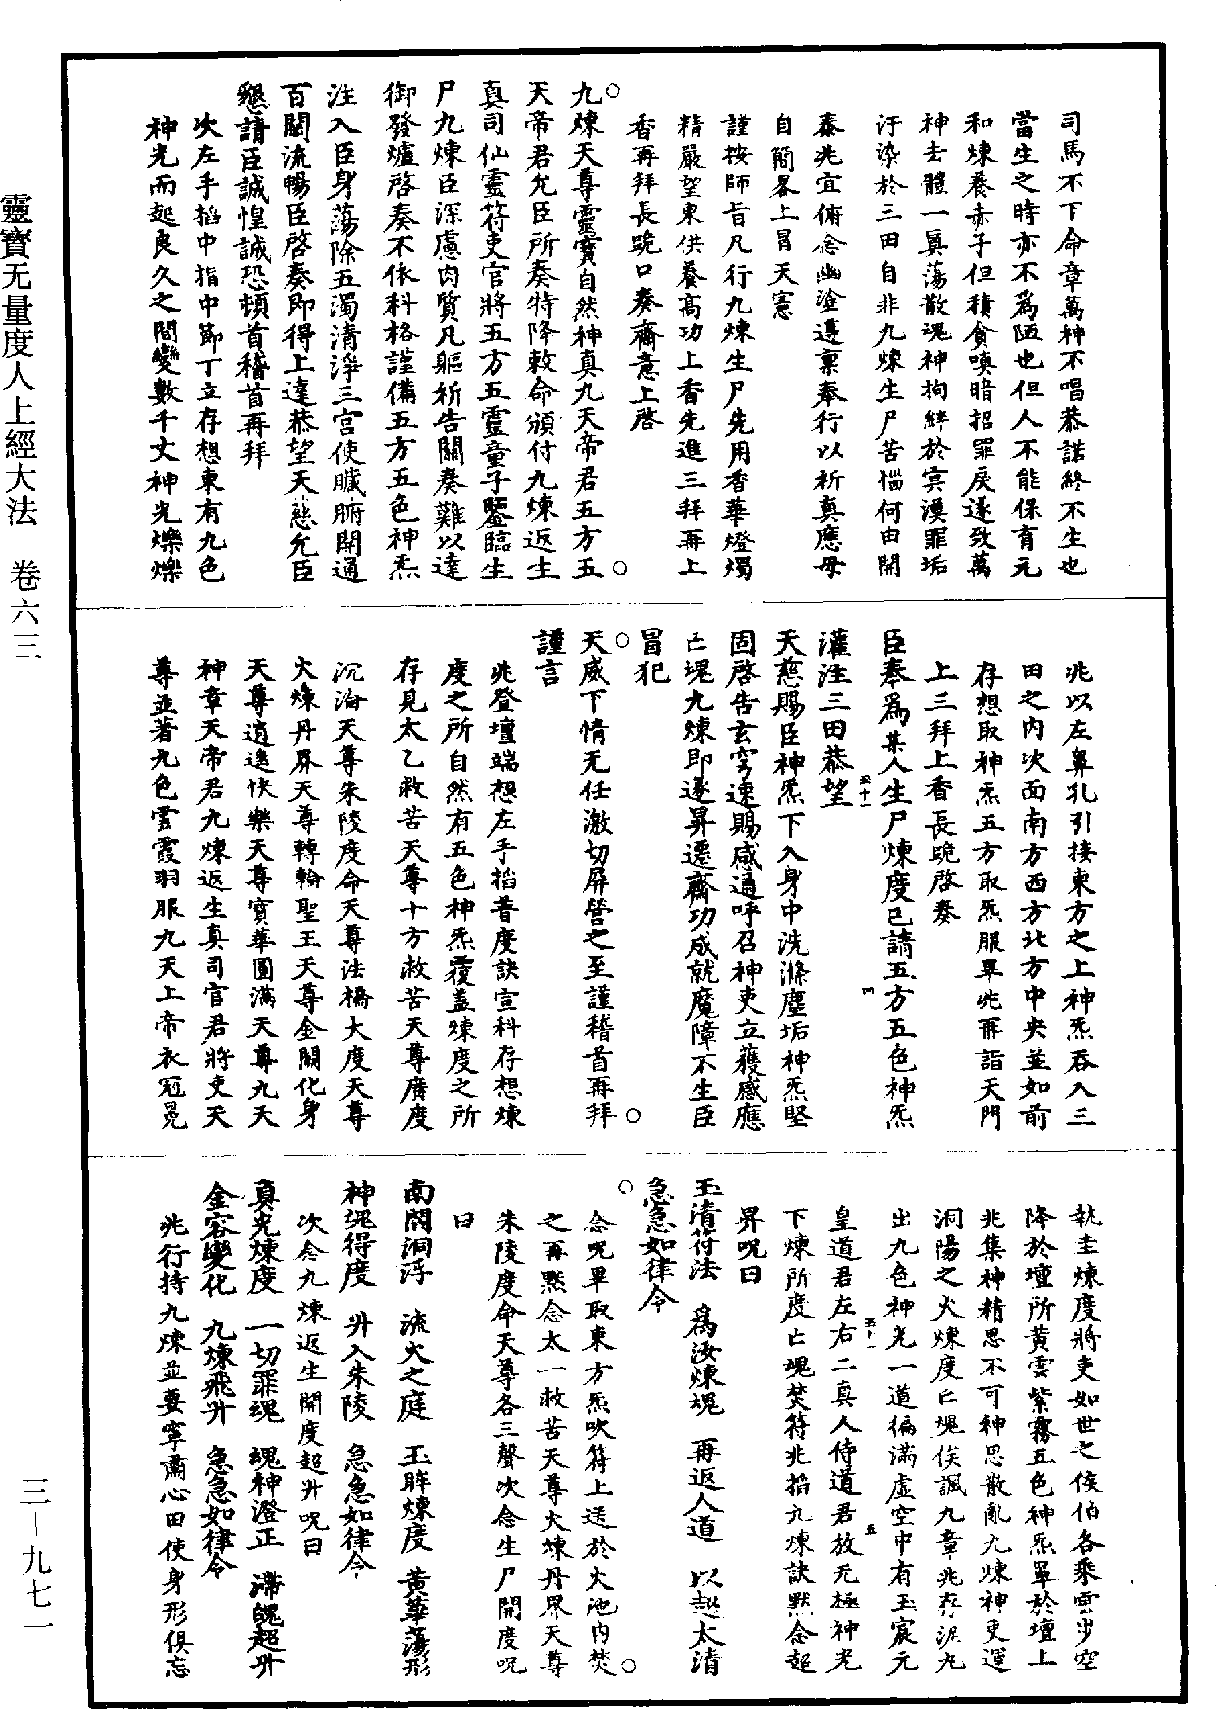 司馬不下命章萬神不唱恭諾終不生也
當生之時亦不為陋也但人不能保有元
和煉養赤子但積貪嗔暗招罪戾遂致萬
神去體一真蕩散魂神拘絆於冥漠罪垢
汙染於三田自非九煉生尸苦惱何由開
泰兆宜俯念幽塗遵稟奉行以祈真應毋
自簡畧上冒天憲
謹按師旨凡行九煉生尸先用香華燈燭
精嚴望東供養高功上香先進三拜再上
香再拜長跪口奏齋意上啓
九煉天尊靈寶自然神真九天帝君五方五
天帝君允臣所奏特降敕命頒付九煉返生
真司仙靈符吏官將五方五靈童子鑒臨生
尸九煉臣深慮肉質凡軀祈告關奏難以達
御發爐啓奏不依科格謹備五方五色神炁
注入臣身蕩除五濁清淨三宮使臟腑開通
百關流暢臣啓奏即得上達恭望天慈允臣
懇請臣誠惶誠恐頓首稽首再拜
次左手掐中指中節丁立存想東有九色
神光而起良久之間變數千丈神光爍爍
兆以左鼻孔引接東方之上神炁吞入三
田之內次面南方西方北方中央並如前
存想取神炁五方取炁服畢兆再詣天門
上三拜上香長跪啓奏
臣奉為某人生尸煉度已請五方五色神炁
灌注三田恭望
天慈賜臣神炁下入身中洗滌塵垢神炁堅
固啓告玄穹速賜感通呼召神吏立獲感應
亡魂九煉即遂昇遷齋功成就魔障不生臣
冒犯
天威下情无任激切屏營之至謹稽首再拜
謹言
兆登壇端想左手掐普度訣宣科存想煉
度之所自然有五色神炁覆蓋煉度之所
存見太乙救苦天尊十方救苦天尊廣度
沉淪天尊朱陵度命天尊法橋大度天尊
火煉丹界天尊轉輪聖王天尊金闕化身
天尊逍遙快樂天尊寶華圓滿天尊九天
神章天帝君九煉返生真司官君將吏天
尊並著九色雲霞羽服九天上帝衣冠冕
執圭煉度將吏如世之侯伯各乘雲步空
降於壇所黃雲紫霧五色神炁罩於壇上
兆集神精思不可神思散亂九煉神吏運
洞陽之火煉度亡魂俟諷九章兆存泥丸
出九色神光一道徧滿虛空中有玉宸元
皇道君左右二真人侍道君放无極神光
下煉所度亡魂焚符兆掐九煉訣默念超
昇呪曰
玉清符法 為汝煉魂 再返人道 以超太清
急急如律令
念呪畢取東方炁吹符上送於火池內焚
之再默念太一救苦天尊火煉丹界天尊
朱陵度命天尊各三聲次念生尸開度呪
曰
南閣洞浮 流火之庭 玉眸煉度 黃華蕩形
神魂得度 升入朱陵 急急如律令
次念九煉返生開度超升呪曰
真光煉度 一切罪魂 魂神澄正 滯魄超升
金容變化 九煉飛升 急急如律令
兆行持九煉並要寧肅心田使身形俱忘
靈寶无量度人上經大法 卷六三
三—九七一